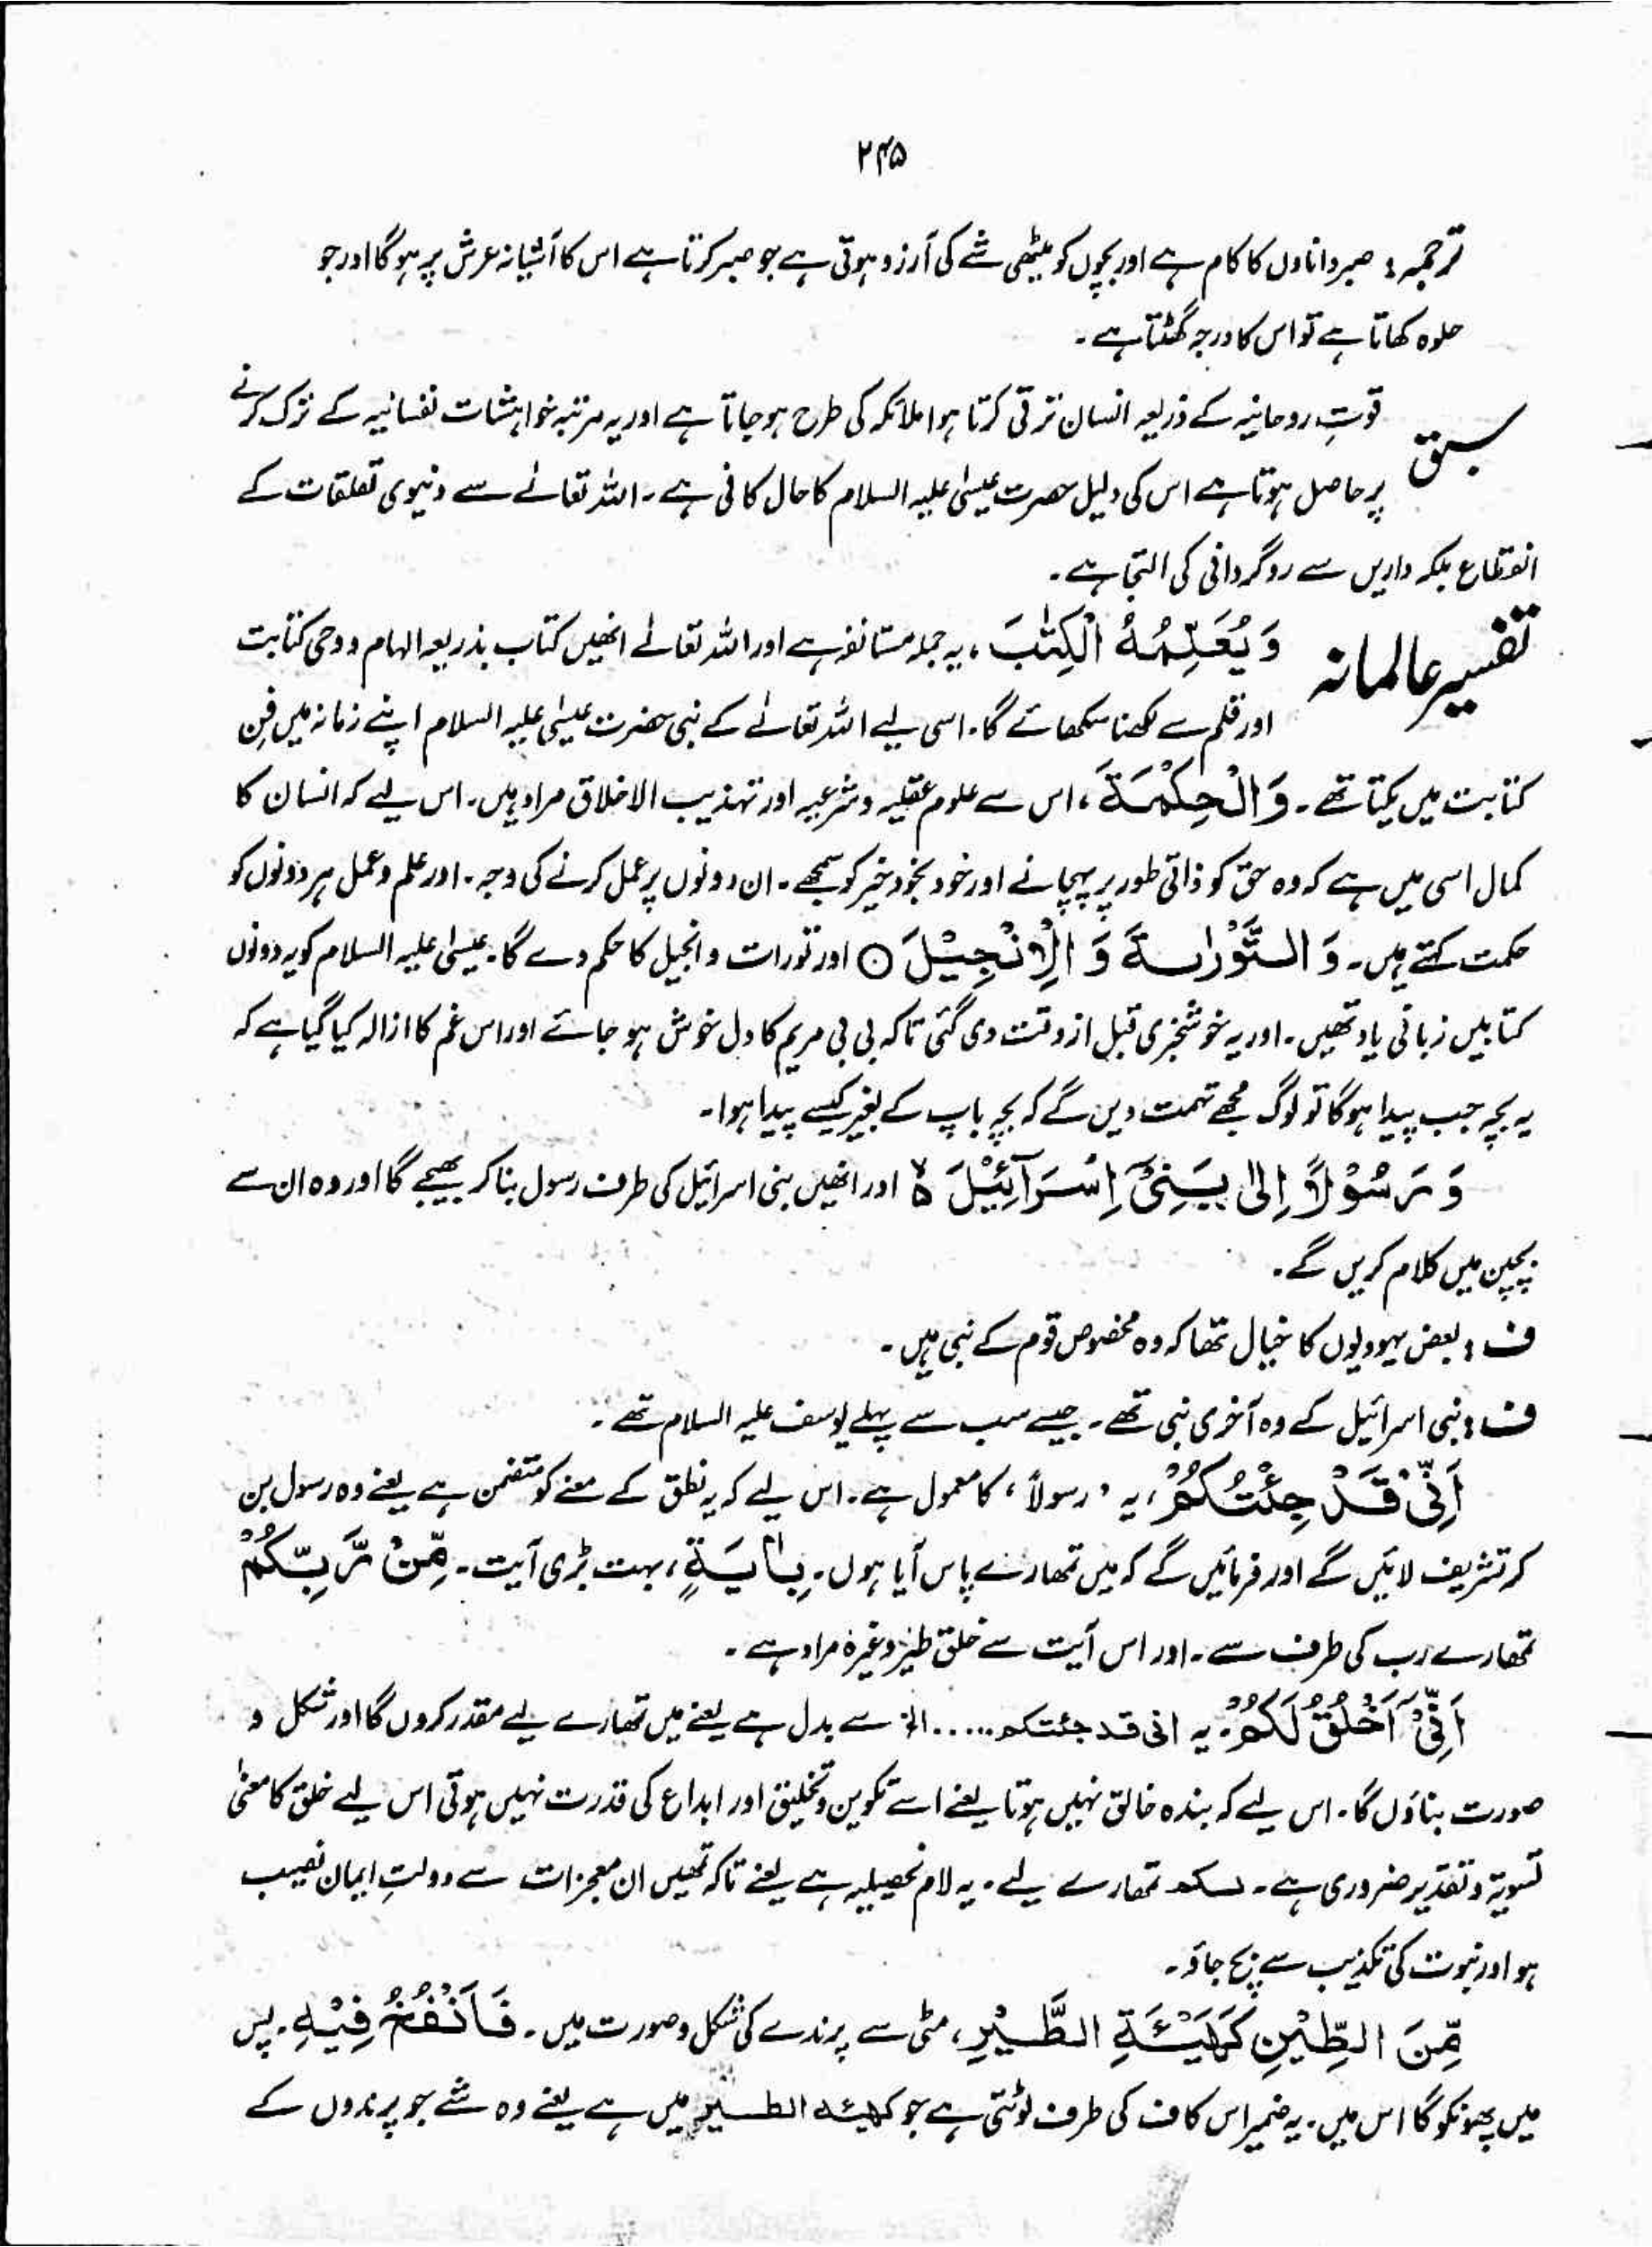 ۲۴۵
ترجمہ: صبر داناوں کا کام ہے اور بچوں کو میٹھی شے کی آرزو ہوتی ہے جو صبر کرتا ہے اس کا آشیانہ عرش پر ہو گا اور جو
حلوہ کھاتا ہے تو اس کا درجہ گھٹتا ہے۔
سبق
قوتِ روحانیہ کے ذریعہ انسان ترقی کرتا ہوا ملائکہ کی طرح ہو جاتا ہے اور یہ مرتبہ خواہشات نفسانیہ کے ترک کرنے
پر حاصل ہوتا ہے اس کی دلیل حضرت عیسیٰ علیہ السلام کا حال کافی ہے۔ اللہ تعالےٰ سے دنیوی تعلقات کے
انقطاع بلکہ دارین سے روگردانی کی التجا ہے۔
تفسیر عالمانہ
وَ یُعَلِّمُهُ الْکِتٰبَ، یہ جملہ مستانفہ ہے اور اللہ تعالےٰ انھیں کتاب بذریعہ الہام و وحی کتابت
اور قلم سے لکھنا سکھائے گا۔ اسی لیے اللہ تعالےٰ کے نبی حضرت عیسیٰ علیہ السلام اپنے زمانہ میں فن
کتابت میں یکتا تھے۔ وَ الْحِکْمَةَ، اس سے علوم عقلیہ و شرعیہ اور تہذیب الاخلاق مراد ہیں۔ اس لیے کہ انسان کا
کمال اسی میں ہے کہ وہ حق کو ذاتی طور پر پہچانے اور خود بخود خیر کو سمجھے۔ ان دونوں پر عمل کرنے کی وجہ۔ اور علم و عمل ہر دونوں کو
حکمت کہتے ہیں۔ وَ التَّوْرٰىةَ وَ الْاِنْجِیْلَ ○ اور تورات و انجیل کا حکم دے گا۔ عیسیٰ علیہ السلام کو یہ دونوں
کتابیں زبانی یاد تھیں۔ اور یہ خوشخبری قبل از وقت دی گئی تاکہ بی بی مریم کا دل خوش ہو جائے اور اس غم کا ازالہ کیا گیا ہے کہ
یہ بچہ جب پیدا ہوگا تو لوگ مجھے تہمت دیں گے کہ بچہ باپ کے بغیر کیسے پیدا ہوا۔
وَ رَسُوْلًا اِلٰی بَنِیْٓ اِسْرَآئِیْلَ ۙ اور انھیں بنی اسرائیل کی طرف رسول بنا کر بھیجے گا اور وہ ان سے
بچپن میں کلام کریں گے۔
ف: بعض یہودیوں کا خیال تھا کہ وہ مخصوص قوم کے نبی ہیں۔
ف: بنی اسرائیل کے وہ آخری نبی تھے۔ جیسے سب سے پہلے یوسف علیہ السلام تھے۔
اَنِّیْ قَدْ جِئْتُکُمْ، یہ 'رسولاً' کا معمول ہے۔ اس لیے کہ یہ نطق کے معنے کو متضمن ہے یعنے وہ رسول بن
کر تشریف لائیں گے اور فرمائیں گے کہ میں تمھارے پاس آیا ہوں۔ بِاٰیَةٍ، بہت بڑی آیت۔ مِّنْ رَّبِّکُمْ
تمھارے رب کی طرف سے۔ اور اس آیت سے خلق طیر وغیرہ مراد ہے۔
اَنِّیْٓ اَخْلُقُ لَکُمْ۔ یہ انی قد جئتکم ..... الخ سے بدل ہے یعنے میں تمھارے لیے مقدر کروں گا اور شکل و
صورت بناؤں گا۔ اس لیے کہ بندہ خالق نہیں ہوتا یعنے اسے تکوین و تخلیق اور ابداع کی قدرت نہیں ہوتی اس لیے خلق کا معنیٰ
تسویۃ و تقدیر ضروری ہے۔ لکم تمھارے لیے۔ یہ لام تحصیلیہ ہے یعنے تاکہ تمھیں ان معجزات سے دولتِ ایمان نصیب
ہو اور نبوت کی تکذیب سے بچ جاؤ۔
مِّنَ الطِّیْنِ کَهَیْـَٔةِ الطَّیْرِ، مٹی سے پرندے کی شکل و صورت میں۔ فَاَنْفُخُ فِیْهِ۔ پس
میں پھونکوگا اس میں۔ یہ ضمیر اس کاف کی طرف لوٹتی ہے جو کہیئة الطیر میں ہے یعنے وہ شے جو پرندوں کے